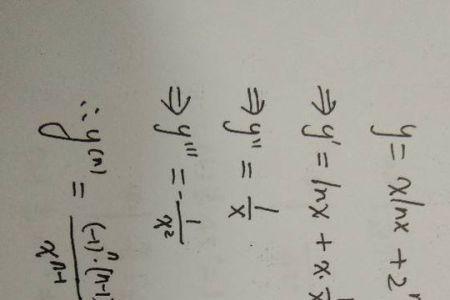 y = xlnx + 2ⁿ
⇒ y' = lnx + x·1/x
⇒ y'' = 1/x
⇒ y''' = -1/x²
∴ y⁽ⁿ⁾ = (-1)ⁿ·(n-1)/xⁿ⁻¹